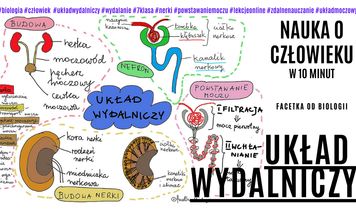 #biologia #człowiek #układwydalniczy #wydalanie #7klasa #nerki #powstawaniemoczu #lekcjeonline #zdalnenauczanie #układmoczowy
NAUKA O
CZŁOWIEKU
W 10 MINUT
FACETKA OD BIOLOGII
UKŁAD
WYDALNICZY
BUDOWA
nerka
moczowód
pęcherz
moczowy
cewka
moczowa
NEFRON
kłębuszek
ciałko
nerkowe
kanalik
nerkowy
UKŁAD
WYDALNICZY
POWSTAWANIE
MOCZU
I FILTRACJA
mocz pierwotny
II WCHŁA-
NIANIE
kora nerki
rdzeń
nerki
miedniczka
nerkowa
BUDOWA NERKI